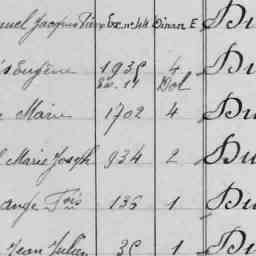 nuel Jacques Pierre Ex. nº 44 Dinan E Du
is Eugène 1935 4 Du
Ex. 14 Dol
e Marie 1702 4 Du
l Marie Joseph 934 2 Du
ange Fois 136 1 Du
Jean Julien 35 1 Du